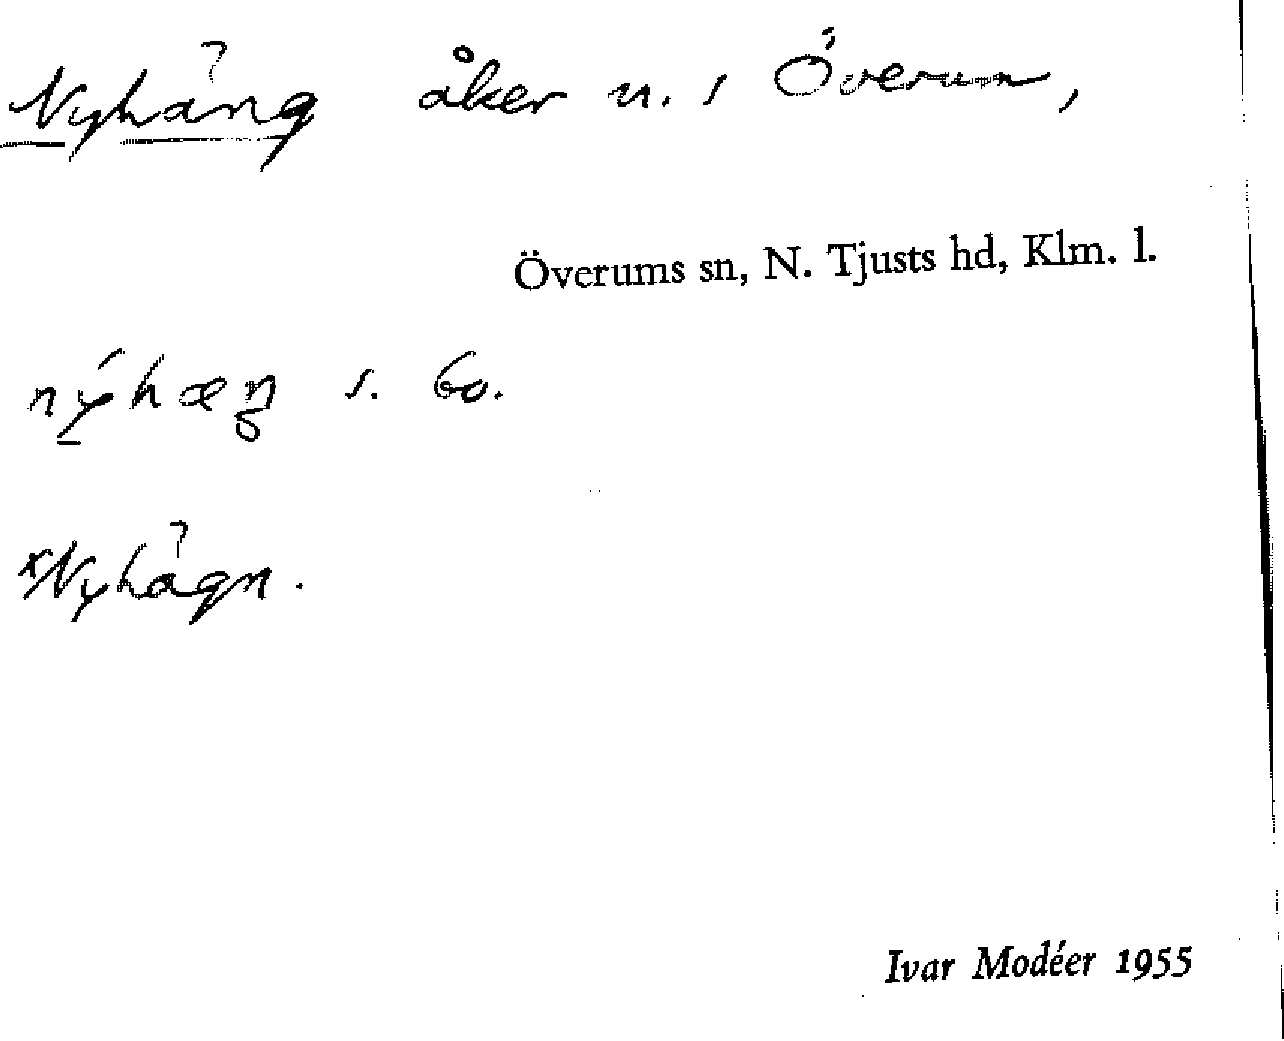 Nyhäng åker n. i Överum,
Överums sn, N. Tjusts hd, Klm. l.
nýhæŋ s. bo.
*Nyhägn.
Ivar Modéer 1955